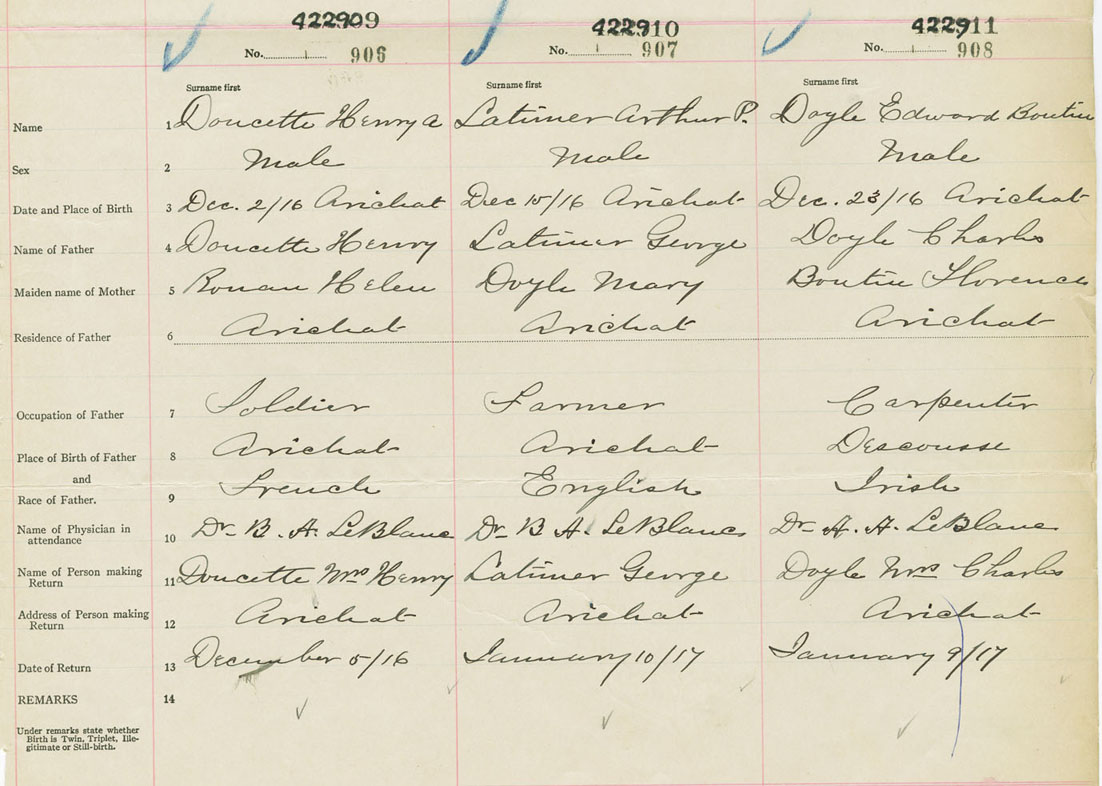 422909 422910 422911
No. 1 906 No. 1 907 No. 1 908
Surname first Surname first Surname first
Name 1 Doucette Henry A Latimer Arthur P. Doyle Edward Boutin
Sex 2 Male Male Male
Date and Place of Birth 3 Dec. 2/16 Arichat Dec 15/16 Arichat Dec. 23/16 Arichat
Name of Father 4 Doucette Henry Latimer George Doyle Charles
Maiden name of Mother 5 Ronan Helen Doyle Mary Boutin Florence
Residence of Father 6 Arichat Arichat Arichat
Occupation of Father 7 Soldier Farmer Carpenter
Place of Birth of Father 8 Arichat Arichat Descousse
and
Race of Father. 9 French English Irish
Name of Physician in
attendance 10 Dr. B. A. LeBlanc Dr. B A. LeBlanc Dr. A. A. LeBlanc
Name of Person making
Return 11 Doucette Mrs Henry Latimer George Doyle Mrs Charles
Address of Person making
Return 12 Arichat Arichat Arichat
Date of Return 13 December 5/16 January 10/17 January 9/17
REMARKS 14
Under remarks state whether
Birth is Twin, Triplet, Ille-
gitimate or Still-birth.